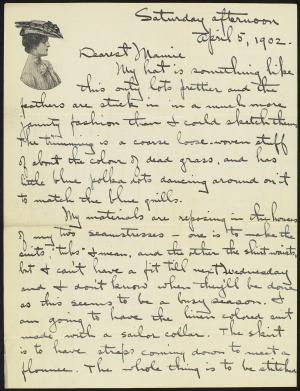 Saturday afternoon
April 5, 1902.
Dearest Mamie
My hat is something like
this only lots prettier and the
feathers are stuck in in a much more
jaunty fashion than I could sketch them.
The trimming is a coarse loose-woven stuff
of about the color of dead grass, and has
little blue polka dots dancing around on it
to match the blue quills.
My materials are reposing in the houses
of my two seamstresses - one is to make the
suits, "tubs" I mean, and the other the skirt waists,
but I can't have a fit till next Wednesday
and I don't know when they'll be done
as this seems to be a busy season. I
am going to have the linen colored suit
made with a sailor collar. The skirt
is to have straps coming down to meet a
flounce. The whole thing is to be stitched